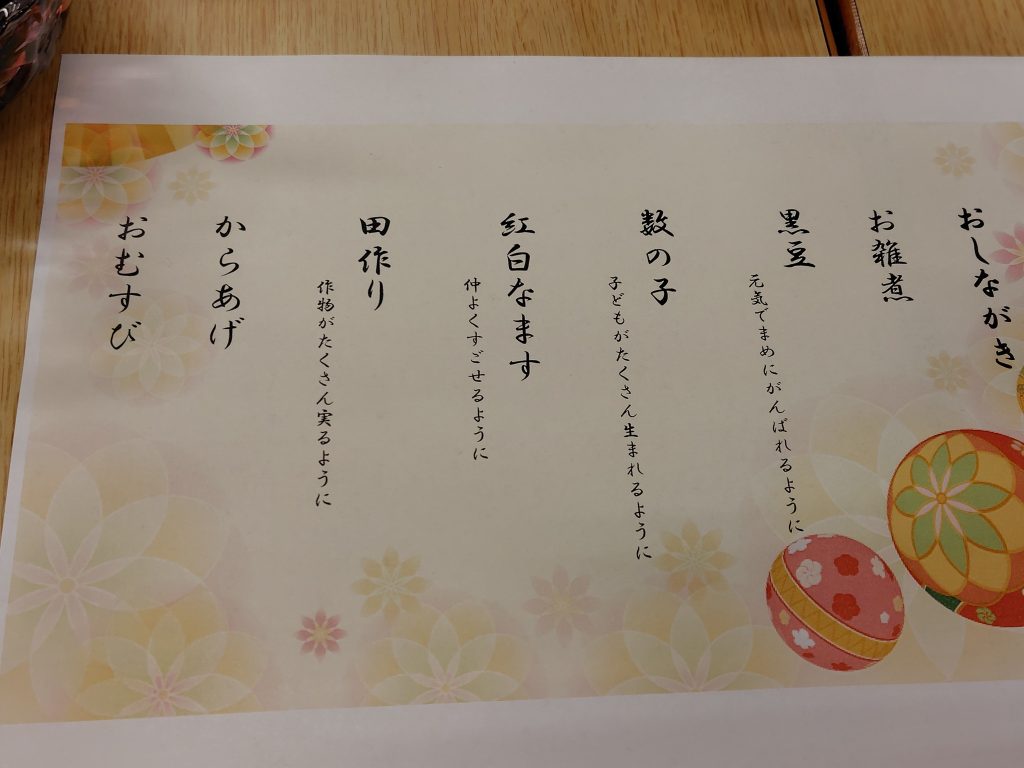 おしながき
お雑煮
黒豆
元気でまめにがんばれるように
数の子
子どもがたくさん生まれるように
紅白なます
仲よくすごせるように
田作り
作物がたくさん実るように
からあげ
おむすび